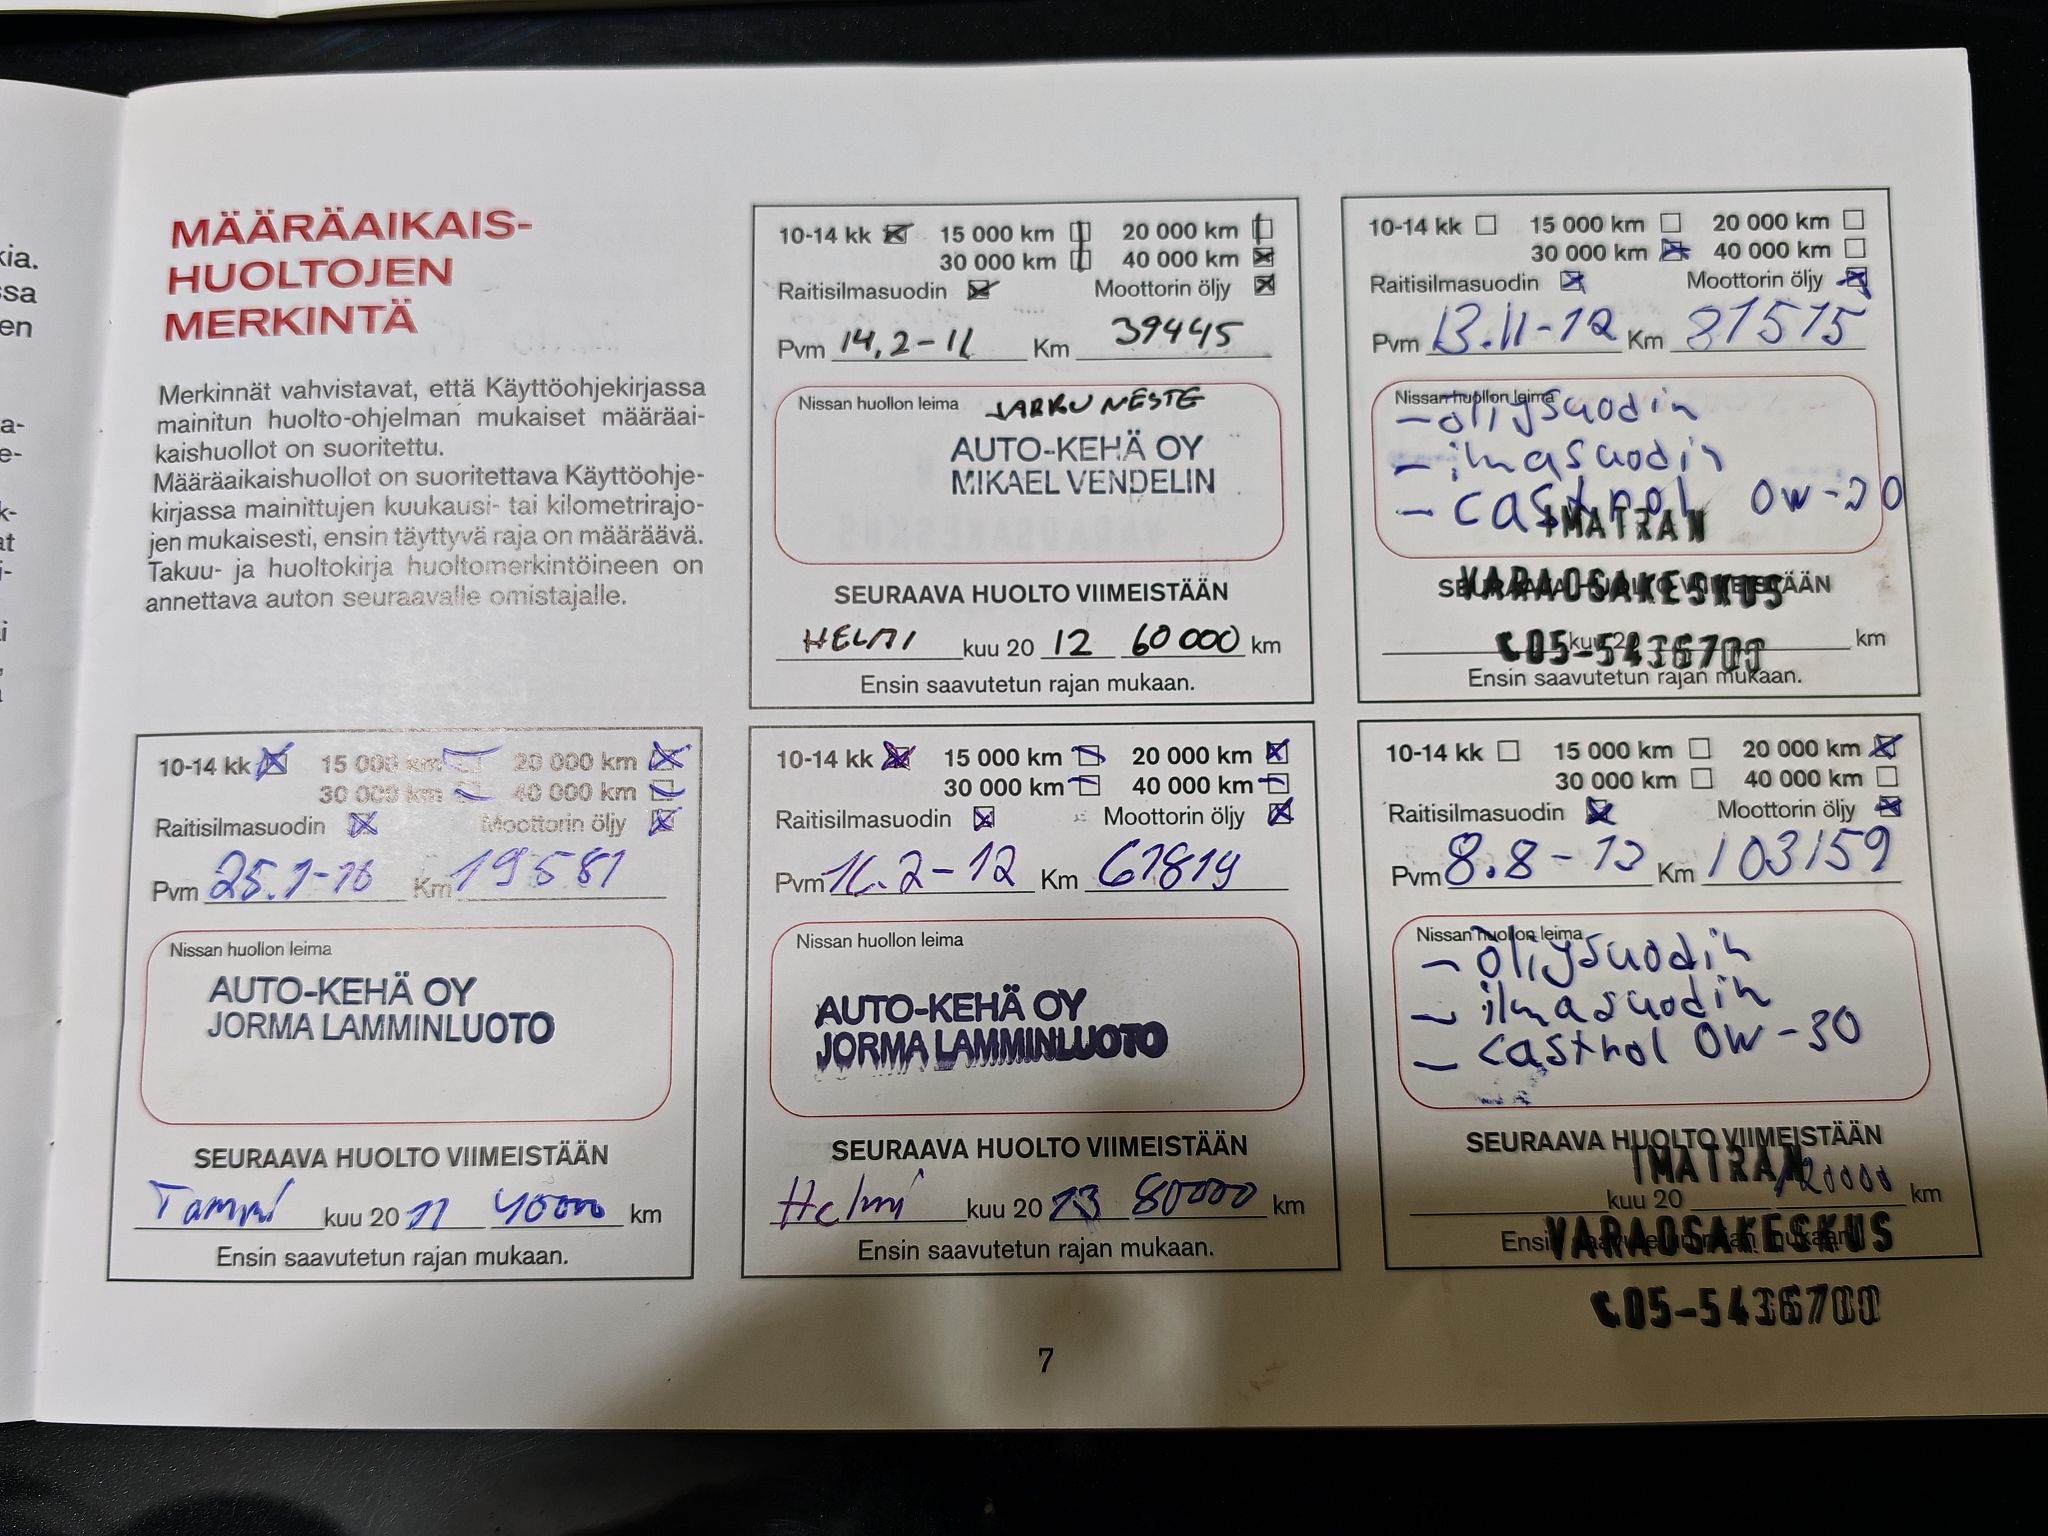 kia.
ssa
en
MÄÄRÄAIKAIS-
HUOLTOJEN
MERKINTÄ
Merkinnät vahvistavat, että Käyttöohjekirjassa
mainitun huolto-ohjelman mukaiset määräai-
kaishuollot on suoritettu.
Määräaikaishuollot on suoritettava Käyttöohje-
kirjassa mainittujen kuukausi- tai kilometrirajo-
jen mukaisesti, ensin täyttyvä raja on määräävä.
Takuu- ja huoltokirja huoltomerkintöineen on
annettava auton seuraavalle omistajalle.
10-14 kk 15 000 km 20 000 km
30 000 km 40 000 km
Raitisilmasuodin Moottorin öljy
Pvm 25.1-10 Km 19581
Nissan huollon leima
AUTO-KEHÄ OY
JORMA LAMMINLUOTO
SEURAAVA HUOLTO VIIMEISTÄÄN
Tammi kuu 20 11 40000 km
Ensin saavutetun rajan mukaan.
10-14 kk 15 000 km 20 000 km
30 000 km 40 000 km
Raitisilmasuodin Moottorin öljy
Pvm 14.2-11 Km 39445
Nissan huollon leima JARRUNESTE
AUTO-KEHÄ OY
MIKAEL VENDELIN
SEURAAVA HUOLTO VIIMEISTÄÄN
HELMI kuu 20 12 60 000 km
Ensin saavutetun rajan mukaan.
10-14 kk 15 000 km 20 000 km
30 000 km 40 000 km
Raitisilmasuodin Moottorin öljy
Pvm Km 61819
Nissan huollon leima
AUTO-KEHÄ OY
JORMA LAMMINLUOTO
SEURAAVA HUOLTO VIIMEISTÄÄN
Helmi kuu 20 13 80000 km
Ensin saavutetun rajan mukaan.
10-14 kk 15 000 km 20 000 km
30 000 km 40 000 km
Raitisilmasuodin Moottorin öljy
Pvm 13.11-12 Km 81515
Nissan huollon leima
- öljysuodin
- ilmasuodin
- castrol 0w-20
IMATRAN
SEURAAVA HUOLTO VIIMEISTÄÄN
VARAOSAKESKUS
kuu 20 km
C05-5436700
Ensin saavutetun rajan mukaan.
10-14 kk 15 000 km 20 000 km
30 000 km 40 000 km
Raitisilmasuodin Moottorin öljy
Pvm 8.8-13 Km 103159
Nissan huollon leima
- öljysuodin
- ilmasuodin
- castrol 0w-30
SEURAAVA HUOLTO VIIMEISTÄÄN
IMATRAN
kuu 20 120000 km
Ensin saavutetun rajan mukaan.
VARAOSAKESKUS
C05-5436700
7